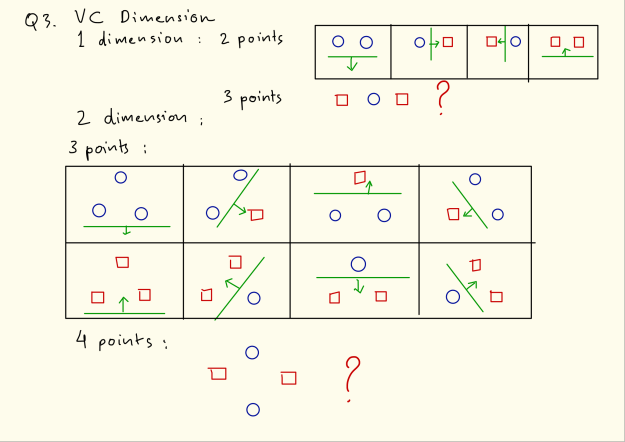 Q3. VC Dimension
1 dimension : 2 points
3 points
?
2 dimension ;
3 points :
4 points :
?